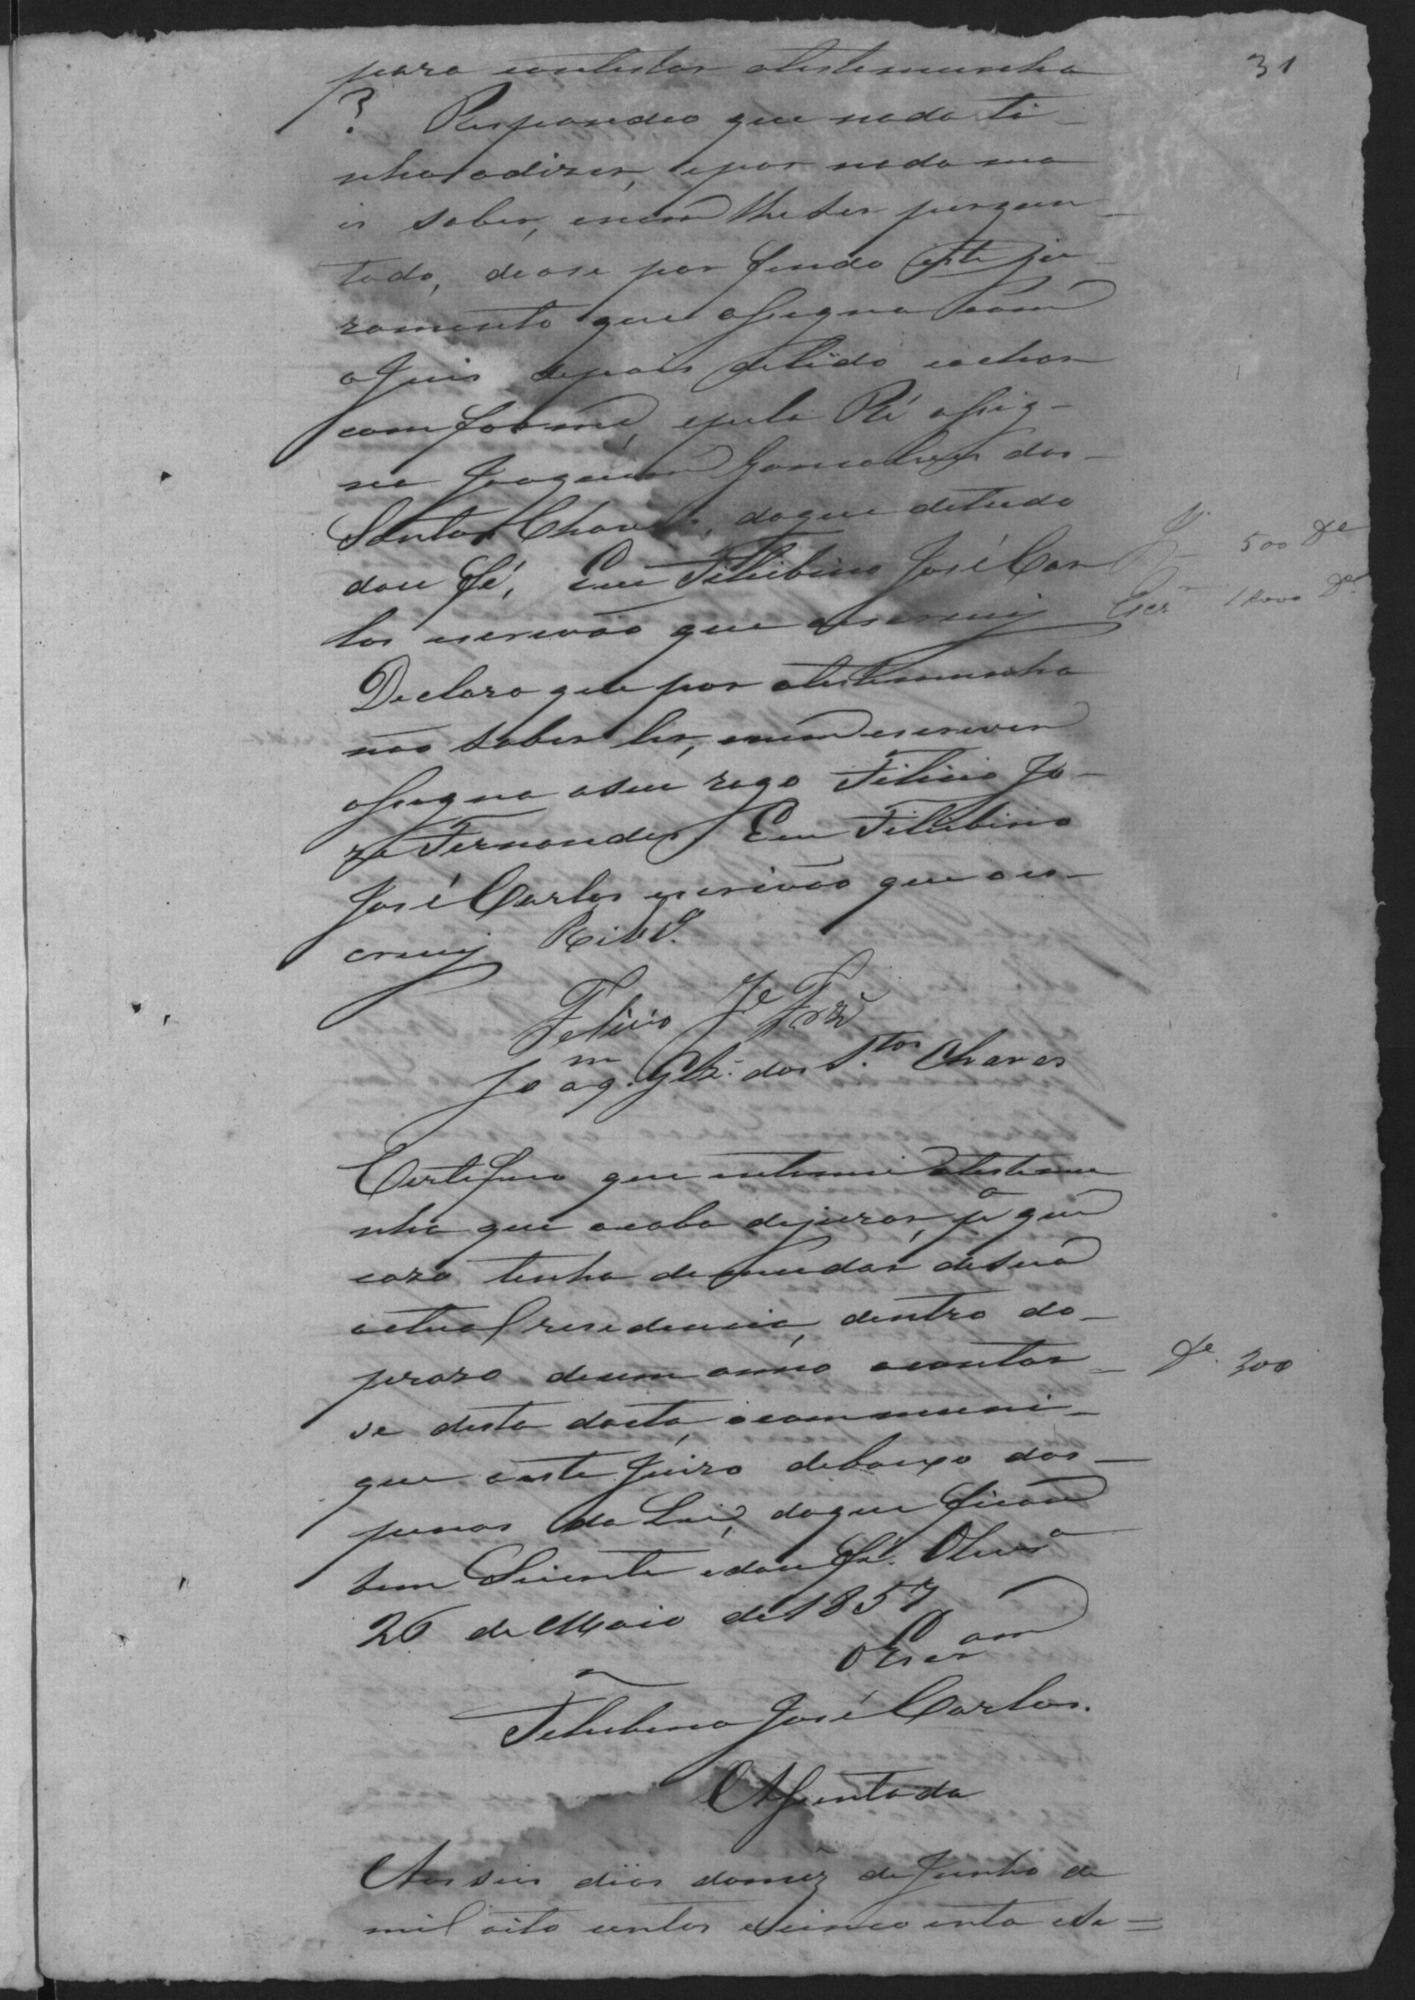 31
para contestar atestemunha
? Respondeo que nada ti-
nha adizer, epor nada ma
is saber, enem lhe ser pergun-
tado, déose por findo este ju-
ramento que assigna com
o Juis depois delido eachar
comforme, epela Ré assig-
na Joaquim Gonçalves dos-
Santos Chaves, doque detudo
dou fé, Eu Filisbino José Car
los escrivão que escrevij
J. 500 De
Escr. 1000 De
Declaro que por atestemunha
não saber ler, enem escrever
assigna aseu rogo Felicio Jo-
zé Fernandes Eu Filisbino
José Carlos escrivão que o es-
crevij Ribr.
Felicio Je Frz
Joaqm. Glz. dos Stos Chaves
Certifico que intimei atestemu
nha que acaba dejurar, pa que
cazo tenha demudar desua
actual residencia, dentro do-
prazo deum anno acontar-
De 300
se desta dacta, ocommuni-
que aeste Juizo debaixo das-
penas da Lei, doque ficou
bem Siente edou fé. Oliva
26 de Maio de 1857
O Escram
Felisbino José Carlos.
Assentada
Aos seis dias domêz de Junho de
mil oito centos ecincoenta e se=